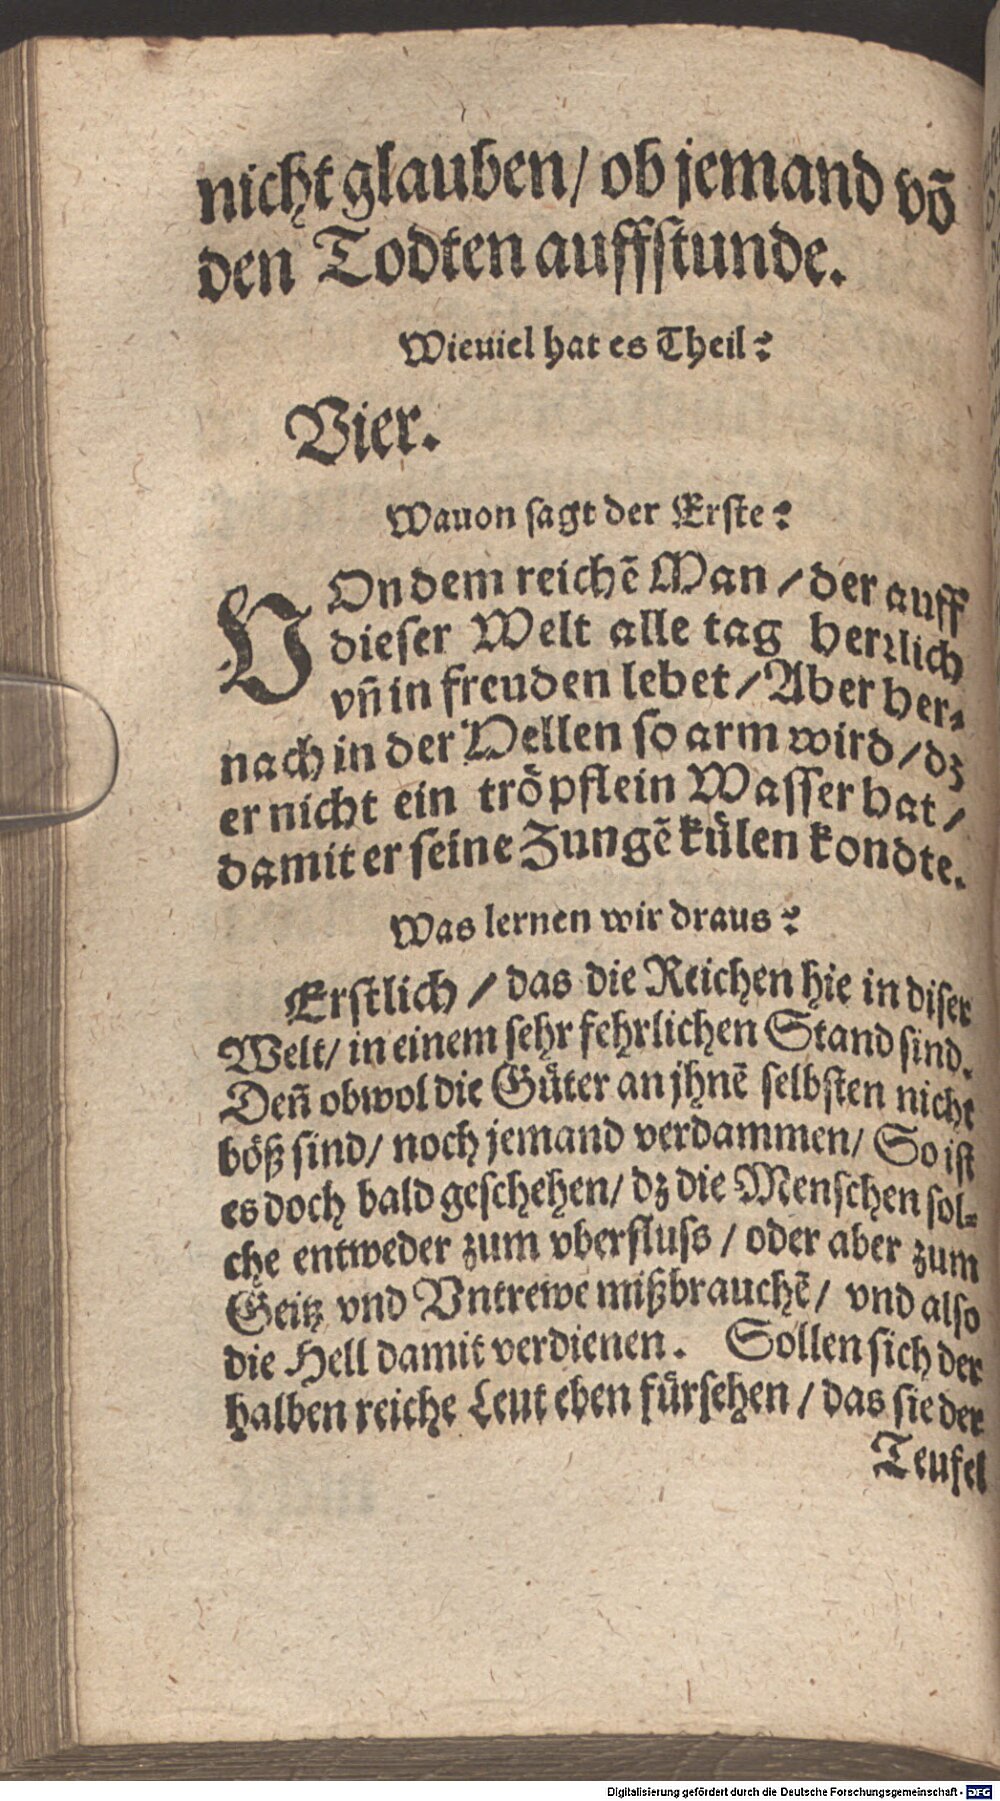 nicht glauben/ ob jemand võ
den Todten auffstunde.
Wieuiel hat es Theil?
Vier.
Wauon sagt der Erste?
VOn dem reichẽ Man / der auff
dieser Welt alle tag herrlich
vñ in freuden lebet / Aber her-
nach in der Hellen so arm wird / dz
er nicht ein tröpflein Wasser hat /
damit er seine Zungẽ külen kondte.
Was lernen wir draus?
Erstlich / das die Reichen hie in diser
Welt/ in einem sehr fehrlichen Stand sind.
Deñ obwol die Güter an jhnẽ selbsten nicht
böß sind/ noch jemand verdammen/ So ist
es doch bald geschehen/ dz die Menschen sol-
che entweder zum vberfluss / oder aber zum
Geitz vnd Vntrewe mißbrauchẽ/ vnd also
die Hell damit verdienen. Sollen sich der
halben reiche Leut eben fürsehen / das sie der
Teufel
Digitalisierung gefördert durch die Deutsche Forschungsgemeinschaft - DFG